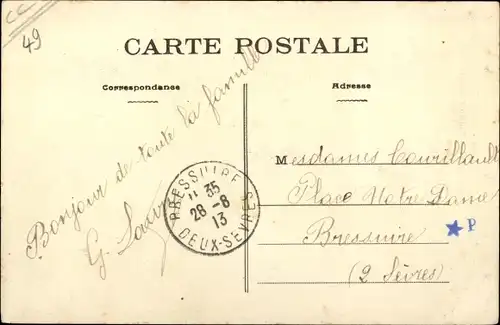 CC
49
CARTE POSTALE
Correspondance
Adresse
Bonjour de toute la famille
G.
BRESSUIRE
11 35
28 - 8
13
DEUX-SEVRES
Mesdames Courillault
Place Notre Dame
Bressuire
P
(2 Sèvres)